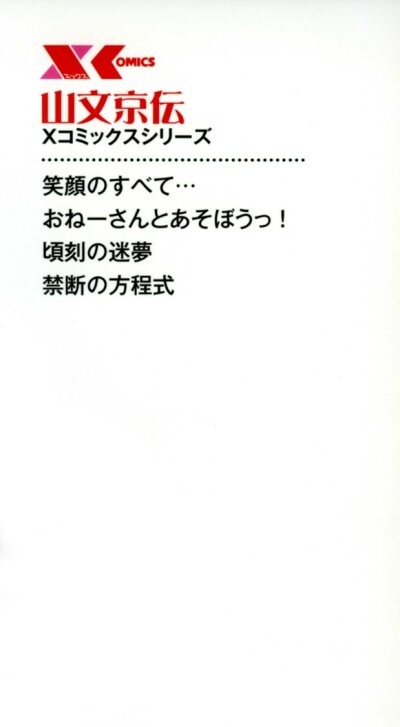 XK OMICS
エックス
山文京伝
Xコミックスシリーズ
笑顔のすべて…
おねーさんとあそぼうっ！
頃刻の迷夢
禁断の方程式